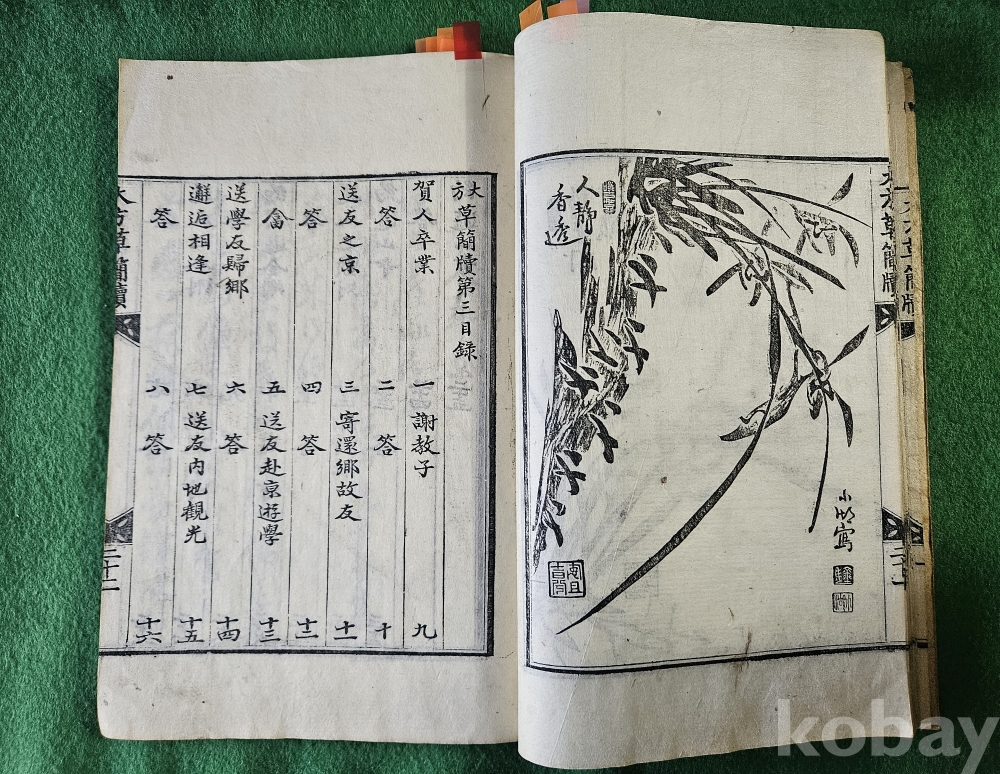 人靜
香透
小湖寫
大方草簡牘
大方草簡牘第三目錄
賀人卒業 一 謝教子 九
答 二 答 十
送友之京 三 寄還鄉故友 十一
答 四 答 十二
畣 五 送友赴京遊學 十三
送學友歸鄉 六 答 十四
邂逅相逢 七 送友內地觀光 十五
答 八 答 十六
大方草簡牘
kobay